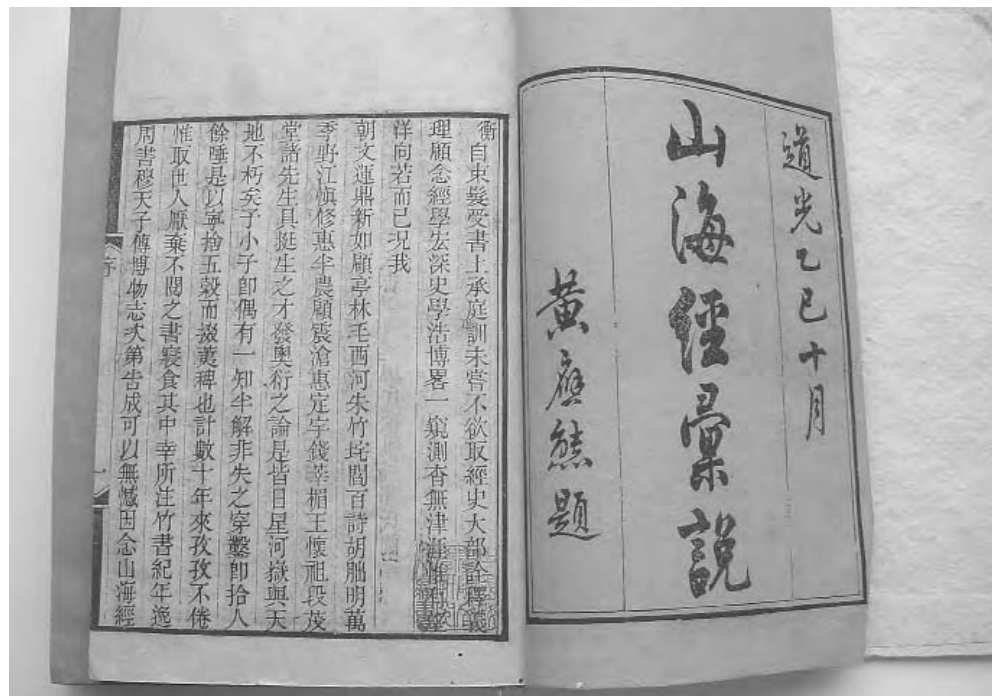 道光乙巳十月
山海經彙說
黃應熊題
衡自束髮受書上承庭訓未嘗不欲取經史大部詮釋義
理顧念經學宏深史學浩博畧一窺測杳無津涯惟有望
洋向若而已現我
朝文運鼎新如顧亭林毛西河朱竹垞閻百詩胡朏明萬
季野江慎修惠半農顧震滄惠定宇錢莘楣王懷祖段茂
堂諸先生具挺生之才發奧衍之論是皆日星河嶽與天
地不朽矣予小子卽偶有一知半解非失之穿鑿卽拾人
餘唾是以寧捨五穀而掇荑稗也計數十年來孜孜不倦
惟取世人厭棄不閱之書寢食其中幸所注竹書紀年逸
周書穆天子傳博物志次第告成可以無憾因念山海經
序
一